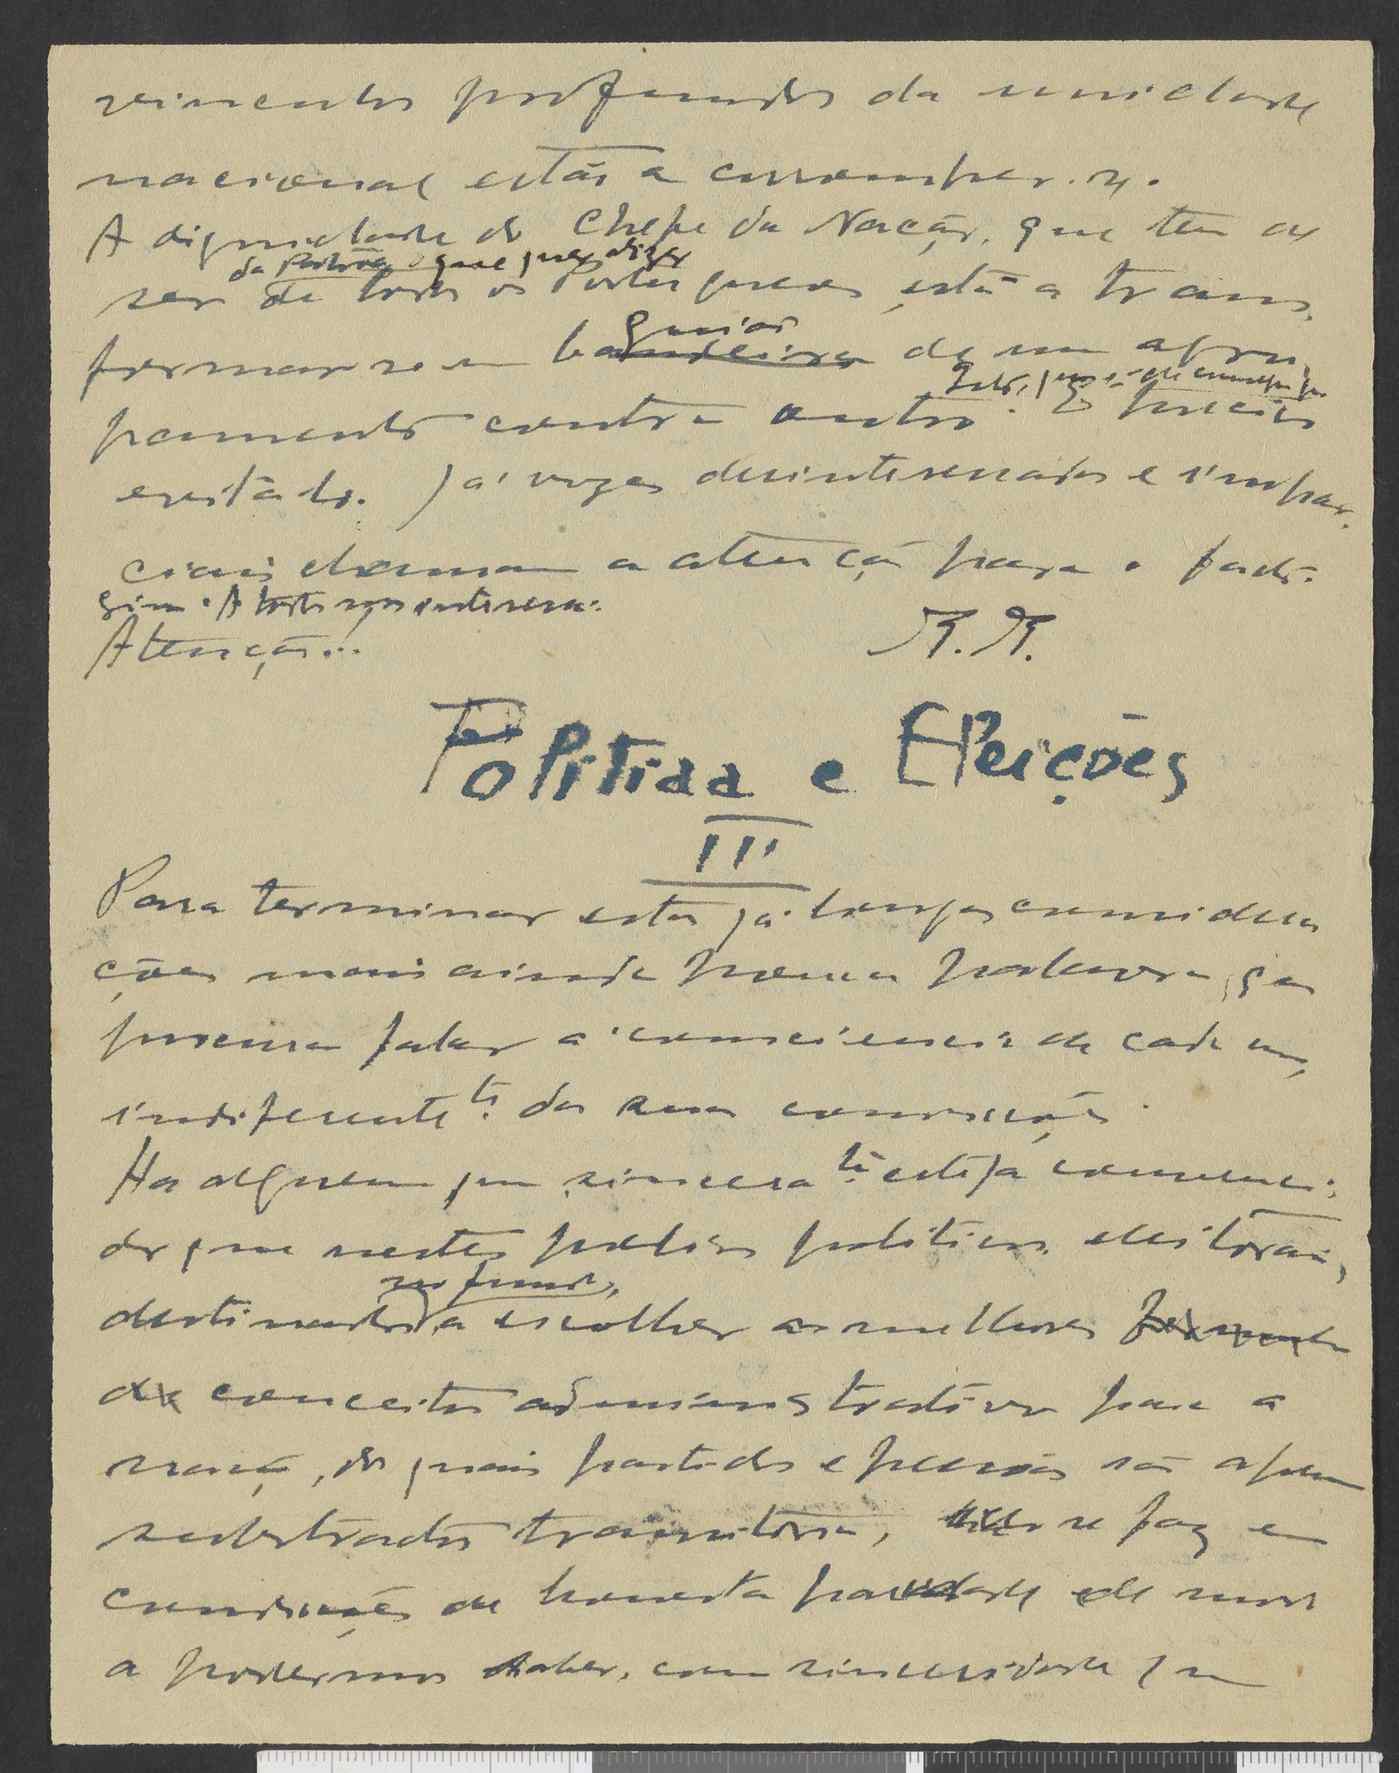 profundos da unidade
nacional estão a corromper-se.
A dignidade do Chefe da Nação, que tem de
que quer dizer
ser de todos os Portugueses está a trans-
guião
formar-se em bandeira de um agru-
pamento contra outro. É preciso
evitá-lo. Já vozes desinteressadas e impar-
ciais chamam a atenção para o facto.
Sim. A todos nos interessa:
Atenção...
Politica e Eleições
III
Para terminar estas já longas considera-
ções mais ainda poucas palavras, que
procuram falar á consciencia de cada um,
indiferente te. da sua convicção.
Ha alguem que sincera te. esteja convenci-
do que nestes politicos eleitorais,
no fundo,
destinados a escolher os melhores
conceitos administrativos para a
nação, dos quais partidos e pessoas são apenas
substractos transitorios, se faz em
condições de honesta e de modo
a podermos saber, com sinceridade que